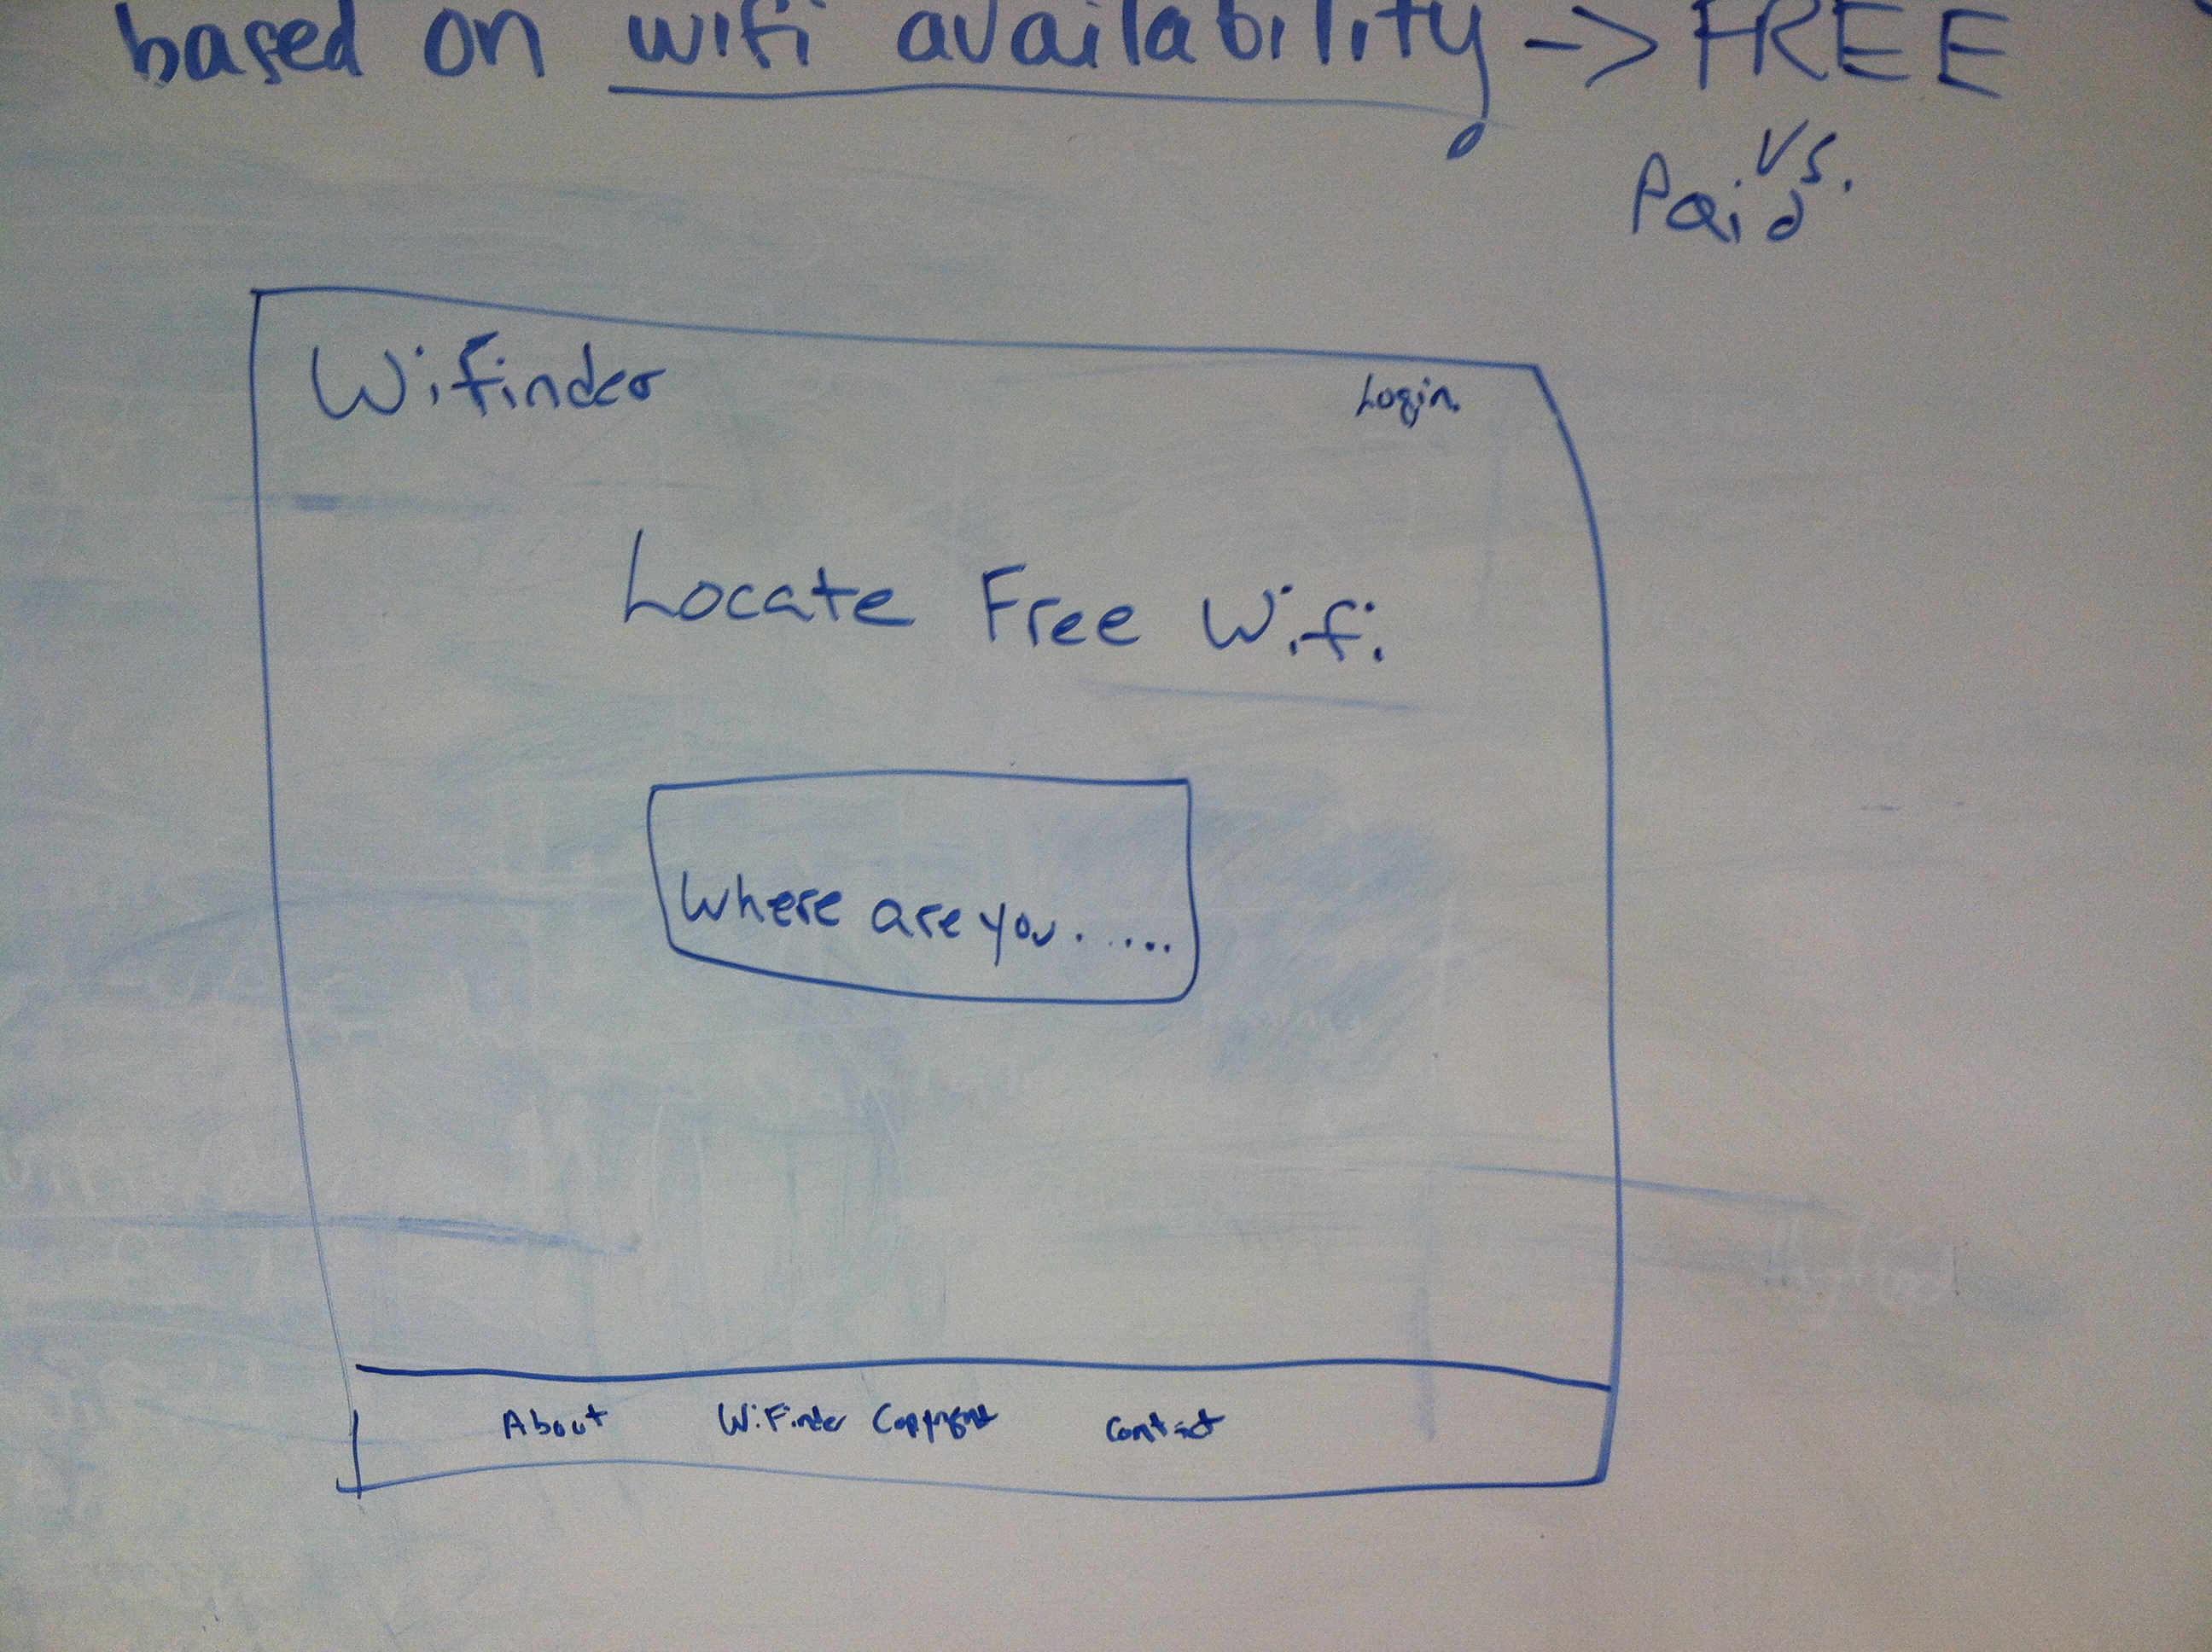 based on wifi availability -> FREE
vs.
Paid
Wifinder
Login
Locate Free Wifi
Where are you......
About WiFinder Copyright Contact